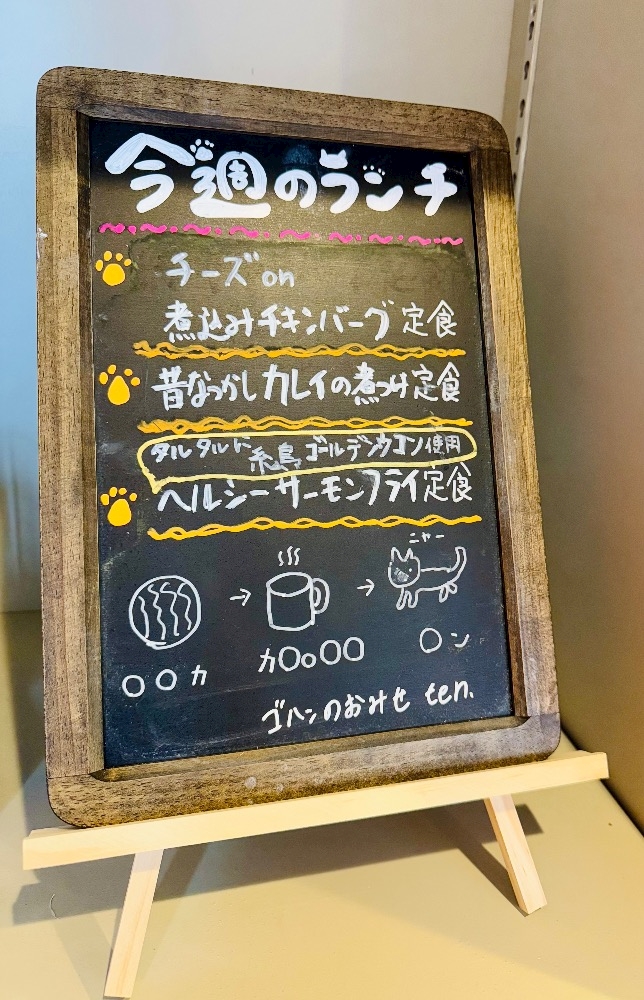 今週のランチ
チーズon
煮込みチキンバーグ定食
昔なつかしカレイの煮つけ定食
タルタルに糸島ゴールデンウコン使用
ヘルシーサーモンフライ定食
ニャー
→ →
〇〇カ カ〇o〇〇 〇ン
ゴハンのおみせ ten.